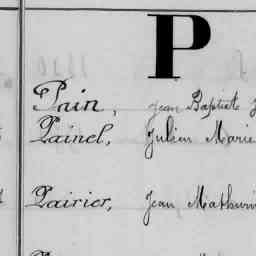 P
Pain, Jean Baptiste
Painel, Julien Marie
Pairier, Jean Mathurin